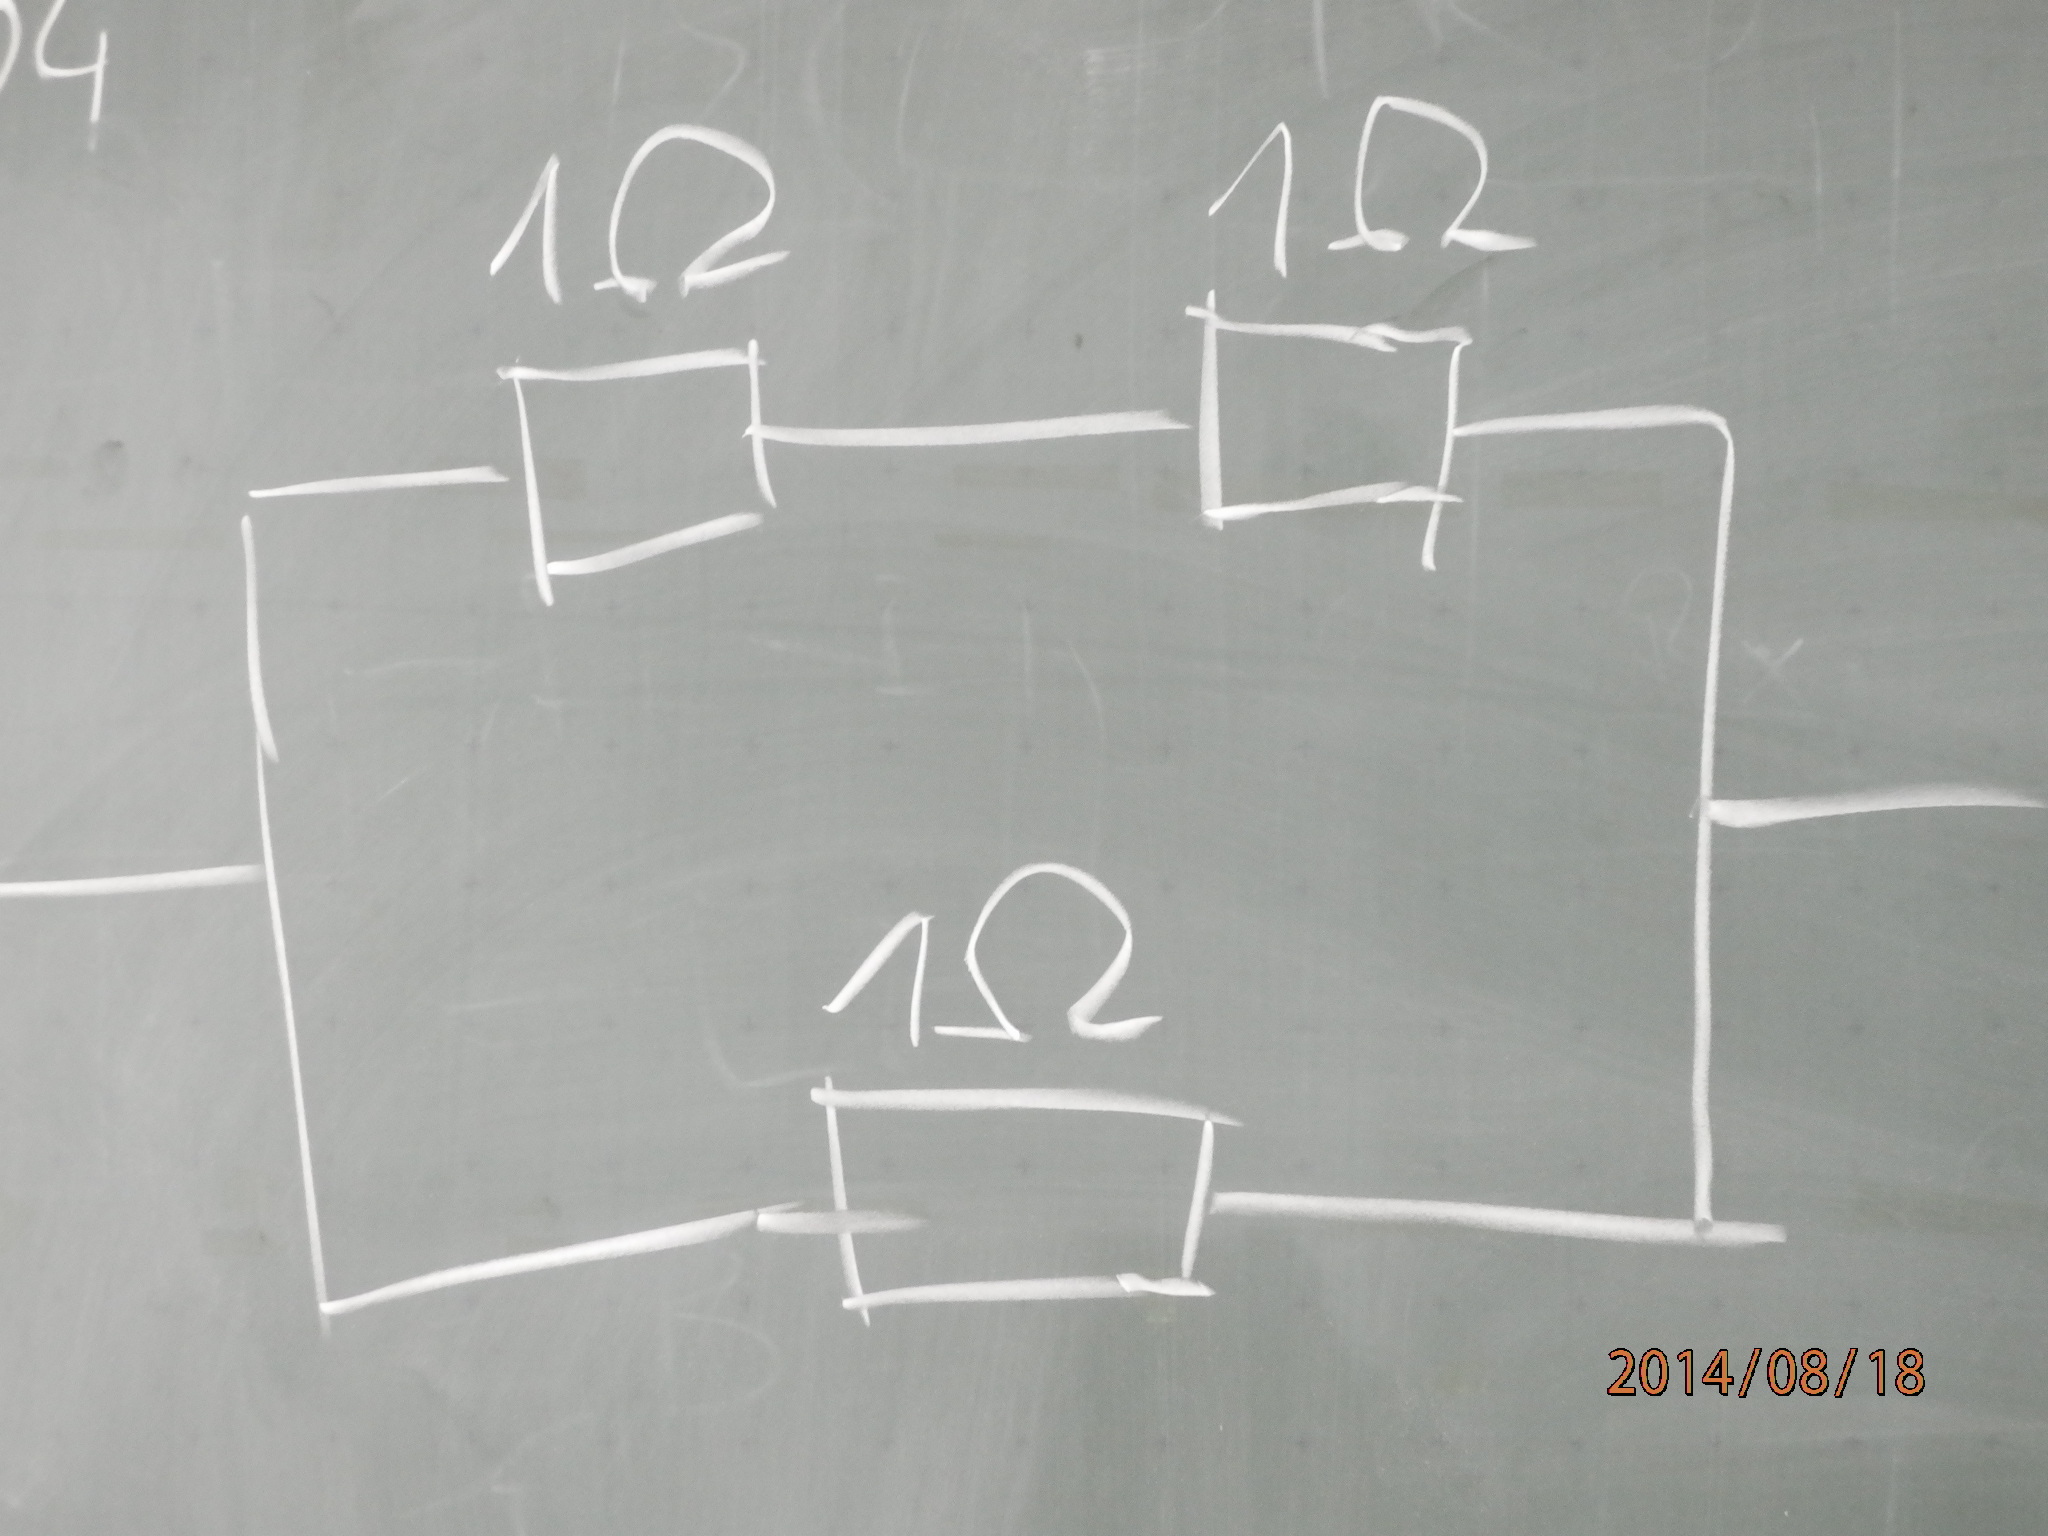 04
1Ω 1Ω
1Ω
2014/08/18